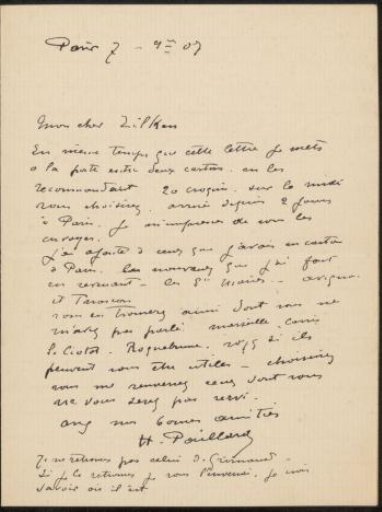 Paris 7 - 9 07
Mon cher Zilken
En même temps que cette lettre je mets
à la poste entre deux cartons en les
recommandant 20 croquis sur le midi
vous choisirez arrivé depuis 2 jours
à Paris. Je m'empresse de vous les
envoyer.
J'ai ajouté à ceux que j'avais en carton
à Paris les nouveaux que j'ai fait
en revenant - les Stes Maries - Avignon
et Tarascon
vous en trouverez aussi dont vous ne
m'avez pas parlé Marseille
la Ciotat - Roquebrune. voyez si ils
peuvent vous être utiles - choisissez
vous me renverrez ceux dont vous
ne vous serez pas servi.
avec nos bonnes amitiés
H. Paillard
Je ne retrouve pas celui de Grimaud -
si je le retrouve je vous l'enverrai. Je vais
savoir où il est